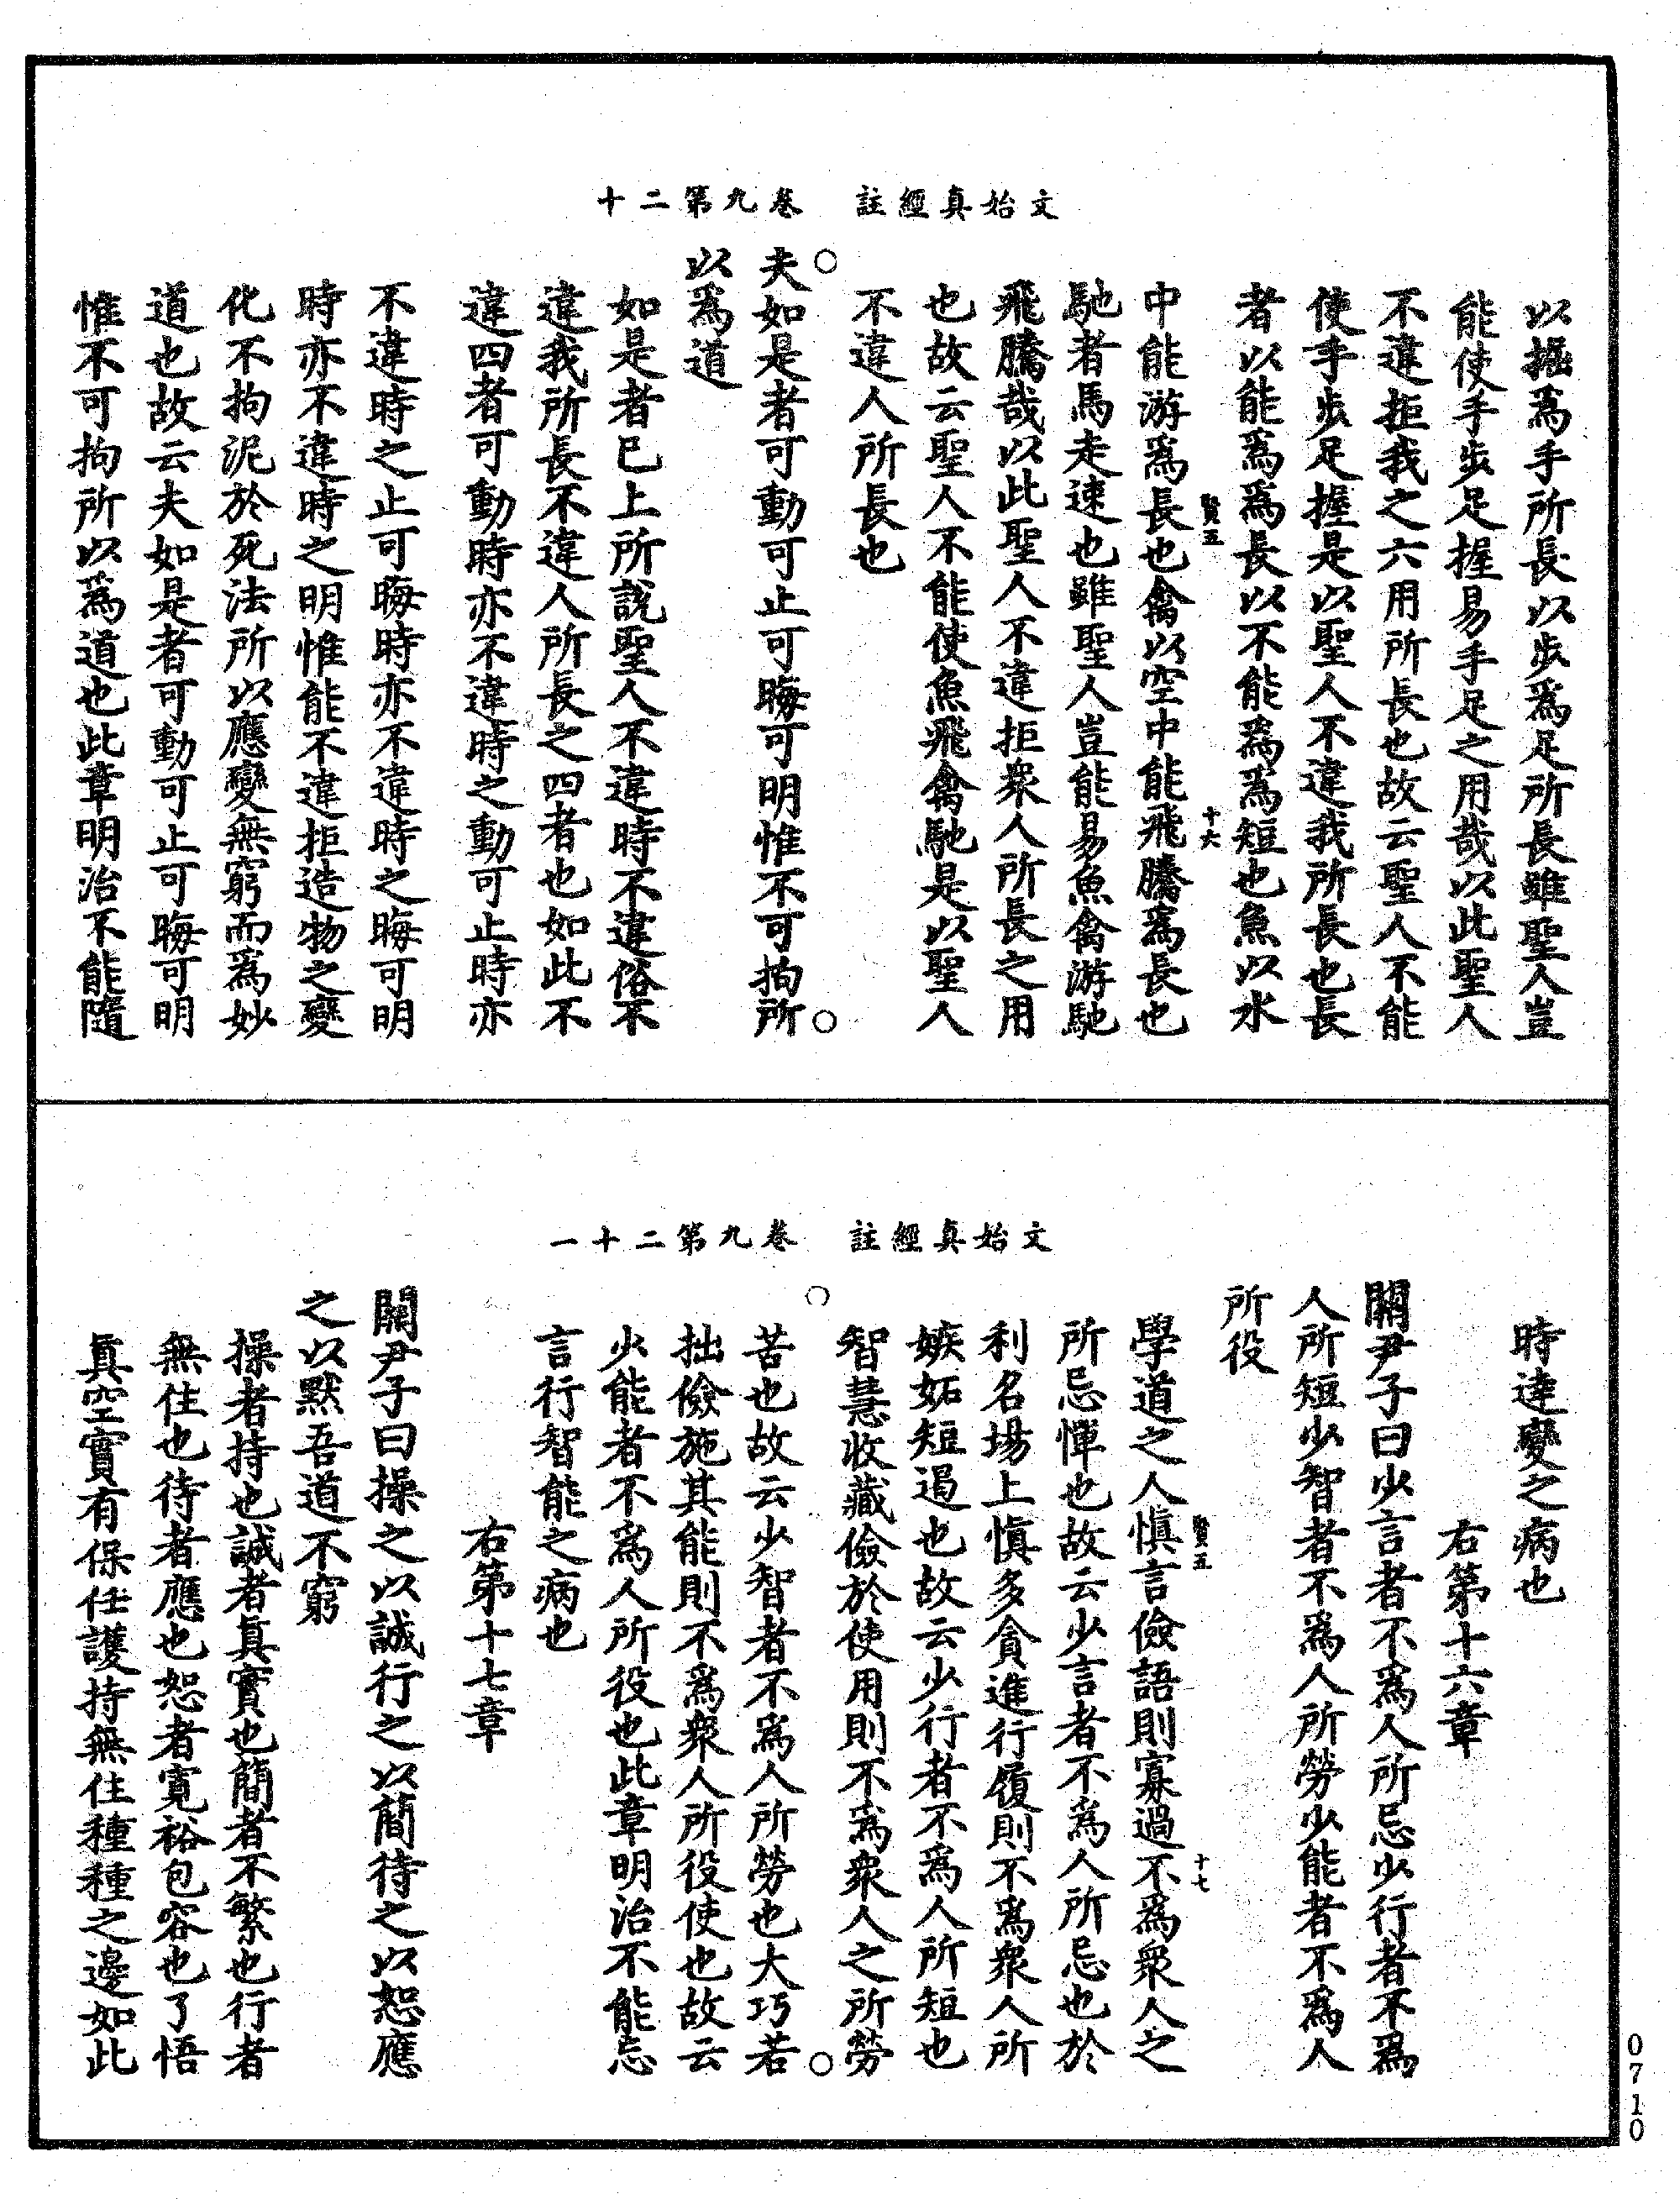 文始真經註　卷九第二十
以握為手所長以步為足所長雖聖人豈
能使手步足握易手足之用哉以此聖人
不違拒我之六用所長也故云聖人不能
使手步足握是以聖人不違我所長也長
者以能為為長以不能為為短也魚以水
賢五　十六
中能游為長也禽以空中能飛騰為長也
馳者馬走速也雖聖人豈能易魚禽游馳
飛騰哉以此聖人不違拒衆人所長之用
也故云聖人不能使魚飛禽馳是以聖人
不違人所長也
夫如是者可動可止可晦可明惟不可拘所
以為道
如是者已上所說聖人不違時不違俗不
違我所長不違人所長之四者也如此不
違四者可動時亦不違時之動可止時亦
不違時之止可晦時亦不違時之晦可明
時亦不違時之明惟能不違拒造物之變
化不拘泥於死法所以應變無窮而為妙
道也故云夫如是者可動可止可晦可明
惟不可拘所以為道也此章明治不能隨
文始真經註　卷九第二十一
時達變之病也
右第十六章
關尹子曰少言者不為人所忌少行者不為
人所短少智者不為人所勞少能者不為人
所役
賢五　十七
學道之人慎言儉語則寡過不為衆人之
所忌憚也故云少言者不為人所忌也於
利名場上慎多貪進行履則不為衆人所
嫉妬短遏也故云少行者不為人所短也
智慧收藏儉於使用則不為衆人之所勞
苦也故云少智者不為人所勞也大巧若
拙儉施其能則不為衆人所役使也故云
少能者不為人所役也此章明治不能忘
言行智能之病也
右第十七章
關尹子曰操之以誠行之以簡待之以恕應
之以默吾道不窮
操者持也誠者真實也簡者不繁也行者
無住也待者應也恕者寬裕包容也了悟
真空實有保任護持無住種種之邊如此
0710